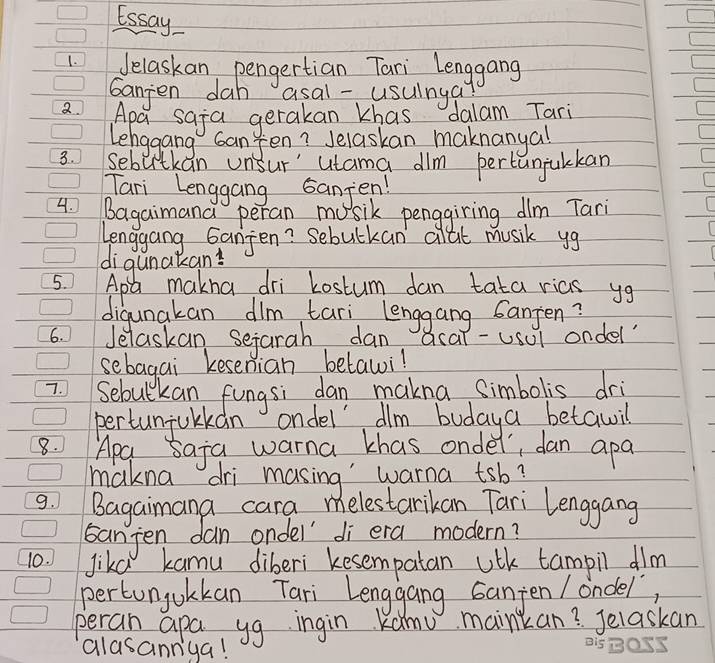 Essay
1. Jelaskan pengertian Tari Lenggang
Ganjen dan asal-usulnya!
2. Apa saja gerakan khas dalam Tari
Lenggang Ganjen? Jelaskan maknanya!
3. Sebutkan unsur' utama dlm pertunjukkan
Tari Lenggang Ganjen!
4. Bagaimana peran musik penggiring dlm Tari
Lenggang Ganjen? Sebutkan alat musik yg
digunakan!
5. Apa makna dri kostum dan tata rias yg
digunakan dlm tari Lenggang Ganjen?
6. Jelaskan sejarah dan asal-usul ondel'
sebagai kesenian betawi!
7. Sebutkan fungsi dan makna simbolis dri
pertunjukkan ondel' dlm budaya betawi!
8. Apa saja warna khas ondel', dan apa
makna dri masing' warna tsb?
9. Bagaimana cara melestarikan Tari Lenggang
Ganjen dan ondel' di era modern?
10. Jika kamu diberi kesempatan utk tampil dlm
pertunjukkan Tari Lenggang Ganjen/ondel',
peran apa yg ingin kamu mainkan? Jelaskan
alasannya!
Bis BOSS